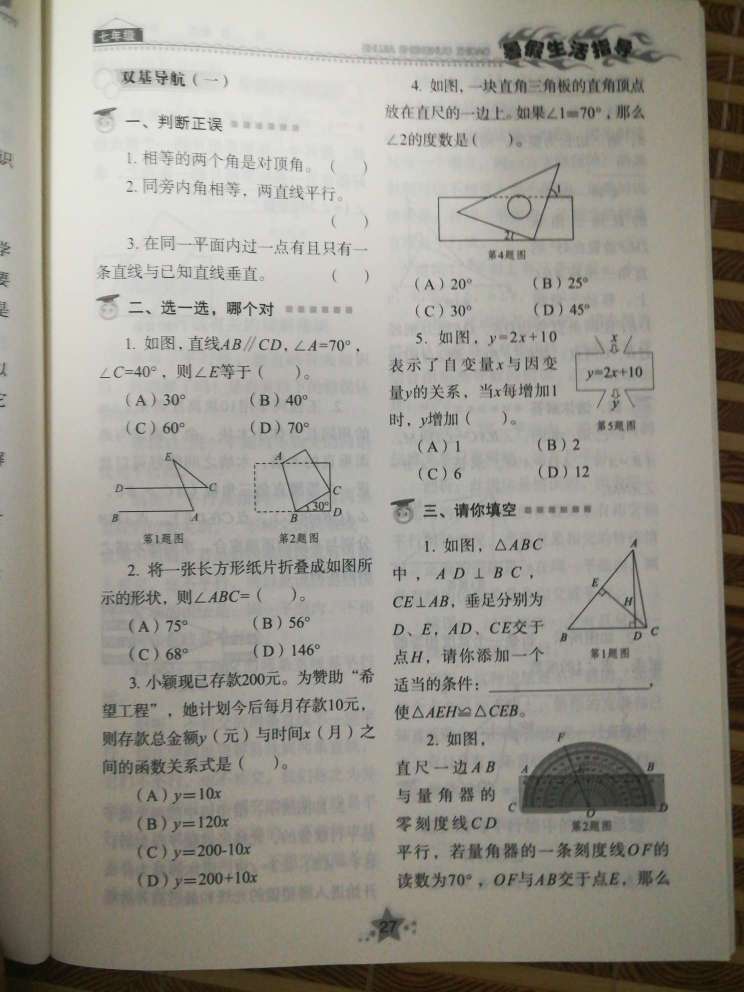 七年级
暑假生活指导
双基导航（一）
一、判断正误
1. 相等的两个角是对顶角。（ ）
2. 同旁内角相等，两直线平行。
（ ）
3. 在同一平面内过一点有且只有一
条直线与已知直线垂直。（ ）
二、选一选，哪个对
1. 如图，直线AB∥CD，∠A=70°，
∠C=40°，则∠E等于（ ）。
（A）30° （B）40°
（C）60° （D）70°
E
D C
B A
第1题图
A
C
30°
B D
第2题图
2. 将一张长方形纸片折叠成如图所
示的形状，则∠ABC=（ ）。
（A）75° （B）56°
（C）68° （D）146°
3. 小颖现已存款200元。为赞助“希
望工程”，她计划今后每月存款10元，
则存款总金额y（元）与时间x（月）之
间的函数关系式是（ ）。
（A）y=10x
（B）y=120x
（C）y=200-10x
（D）y=200+10x
4. 如图，一块直角三角板的直角顶点
放在直尺的一边上。如果∠1=70°，那么
∠2的度数是（ ）。
1
2
第4题图
（A）20° （B）25°
（C）30° （D）45°
5. 如图，y=2x+10
表示了自变量x与因变
量y的关系，当x每增加1
时，y增加（ ）。
x
y=2x+10
y
第5题图
（A）1 （B）2
（C）6 （D）12
三、请你填空
1. 如图，△ABC
中，AD⊥BC，
CE⊥AB，垂足分别为
D、E，AD、CE交于
点H，请你添加一个
适当的条件：，
使△AEH≌△CEB。
A
E
H
B D C
第1题图
2. 如图，
直尺一边AB
与量角器的
零刻度线CD
平行，若量角器的一条刻度线OF的
读数为70°，OF与AB交于点E，那么
F
A B
C O D
第2题图
27